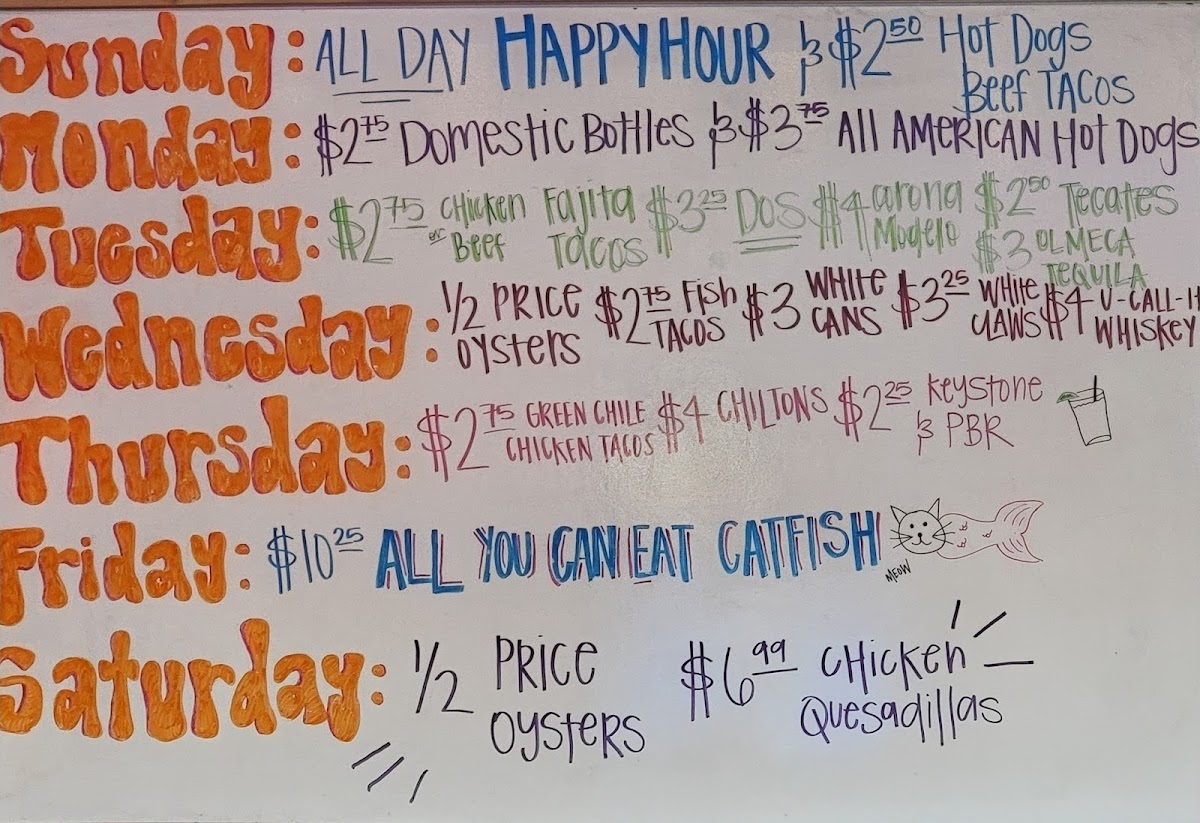 Sunday: ALL DAY HAPPY HOUR & $2.50 Hot Dogs
Beef TACOS
Monday: $2.75 Domestic Bottles & $3.75 All AMERICAN Hot Dogs
Tuesday: $2.75 Chicken or Beef Fajita Tacos $3.25 Dos $4 corona Modelo $2.50 Tecates
$3 OLMECA TEQUILA
Wednesday: 1/2 PRICE Oysters $2.75 Fish TACOS $3 WHITE CANS $3.25 White CLAWS $4 U-CALL-IT WHISKEY
Thursday: $2.75 GREEN CHILE CHICKEN TACOS $4 CHILTONS $2.25 Keystone & PBR
Friday: $10.25 ALL YOU CAN EAT CATFISH
MEOW
Saturday: 1/2 PRICE Oysters $6.99 Chicken Quesadillas